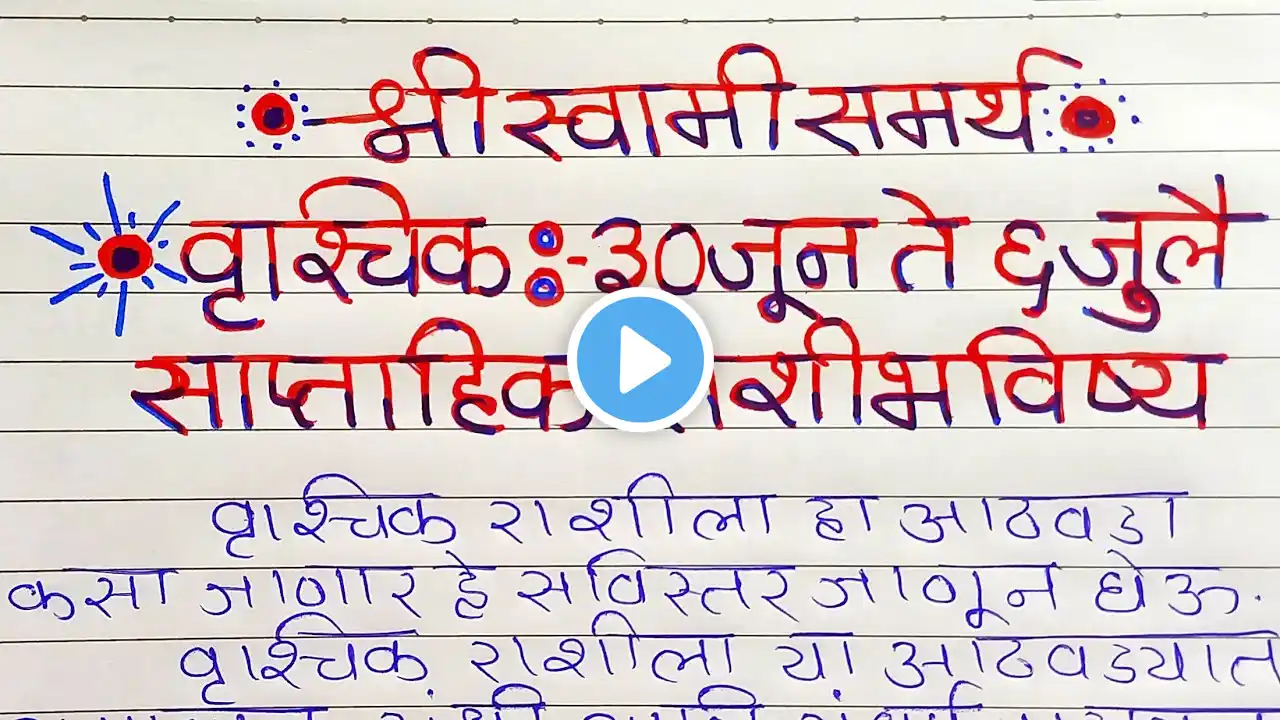 श्री स्वामी समर्थ
वृश्चिक :- ३० जून ते ६ जुलै
साप्ताहिक राशीभविष्य
वृश्चिक राशीला हा आठवडा
कसा जाणार हे सविस्तर जाणून घेऊ.
वृश्चिक राशीला या आठवडयात